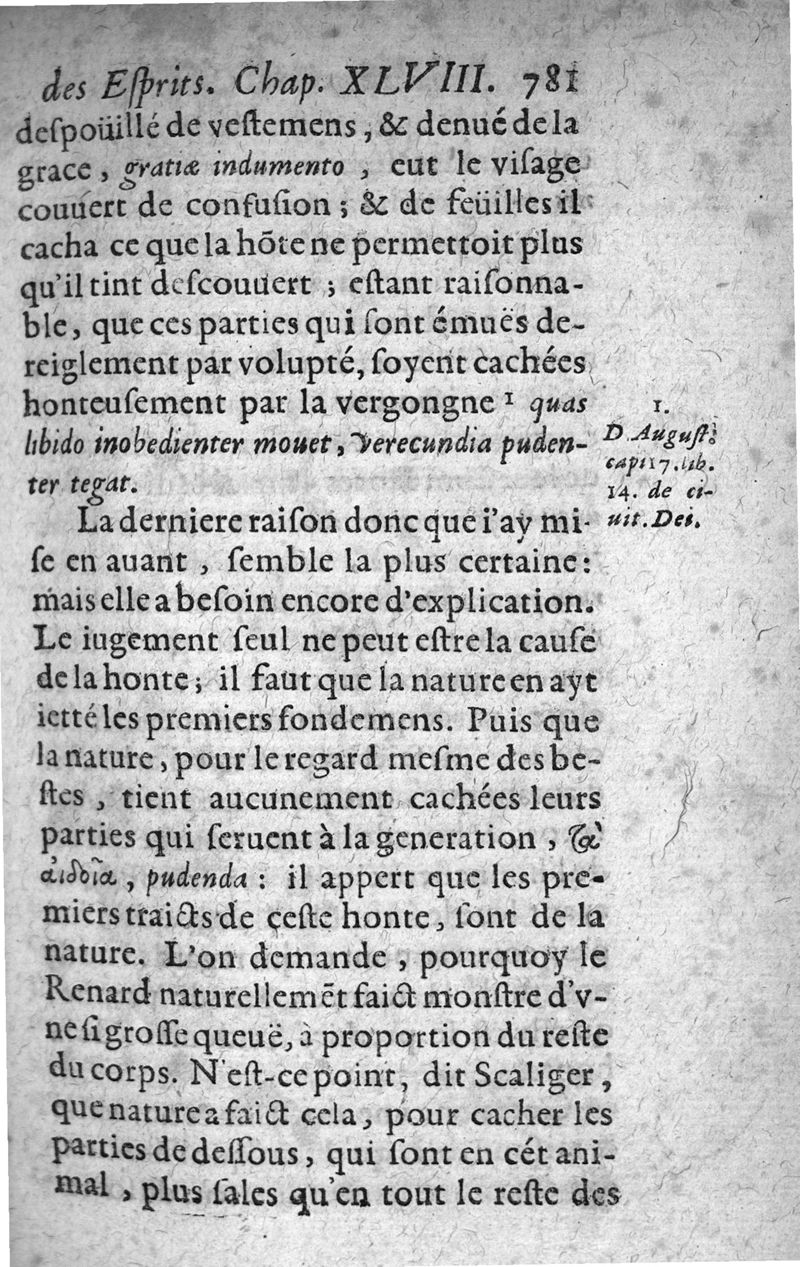 des Eſprits. Chap. XLVIII. 781
deſpoüillé de veſtemens, & denué de la
grace, gratiæ indumento, eut le viſage
couuert de confuſion; & de feüilles il
cacha ce que la hõte ne permettoit plus
qu'il tint deſcouuert; eſtant raiſonna-
ble, que ces parties qui ſont émuës de-
reiglement par volupté, ſoyent cachées
honteuſement par la vergongne 1 quas
libido inobedienter mouet, verecundia puden-
ter tegat.
1.
D. Auguſt.
cap. 17. lib.
14. de ci-
uit. Dei.
La derniere raiſon donc que i'ay mi-
ſe en auant, ſemble la plus certaine:
mais elle a beſoin encore d'explication.
Le iugement ſeul ne peut eſtre la cauſe
de la honte; il faut que la nature en ayt
ietté les premiers fondemens. Puis que
la nature, pour le regard meſme des be-
ſtes, tient aucunement cachées leurs
parties qui ſeruent à la generation, τὰ
αἰδοῖα, pudenda: il appert que les pre-
miers traicts de ceſte honte, ſont de la
nature. L'on demande, pourquoy le
Renard naturellemẽt faict monſtre d'v-
ne ſi groſſe queuë, à proportion du reſte
du corps. N'eſt-ce point, dit Scaliger,
que nature a faict cela, pour cacher les
parties de deſſous, qui ſont en cét ani-
mal, plus ſales qu'en tout le reſte des